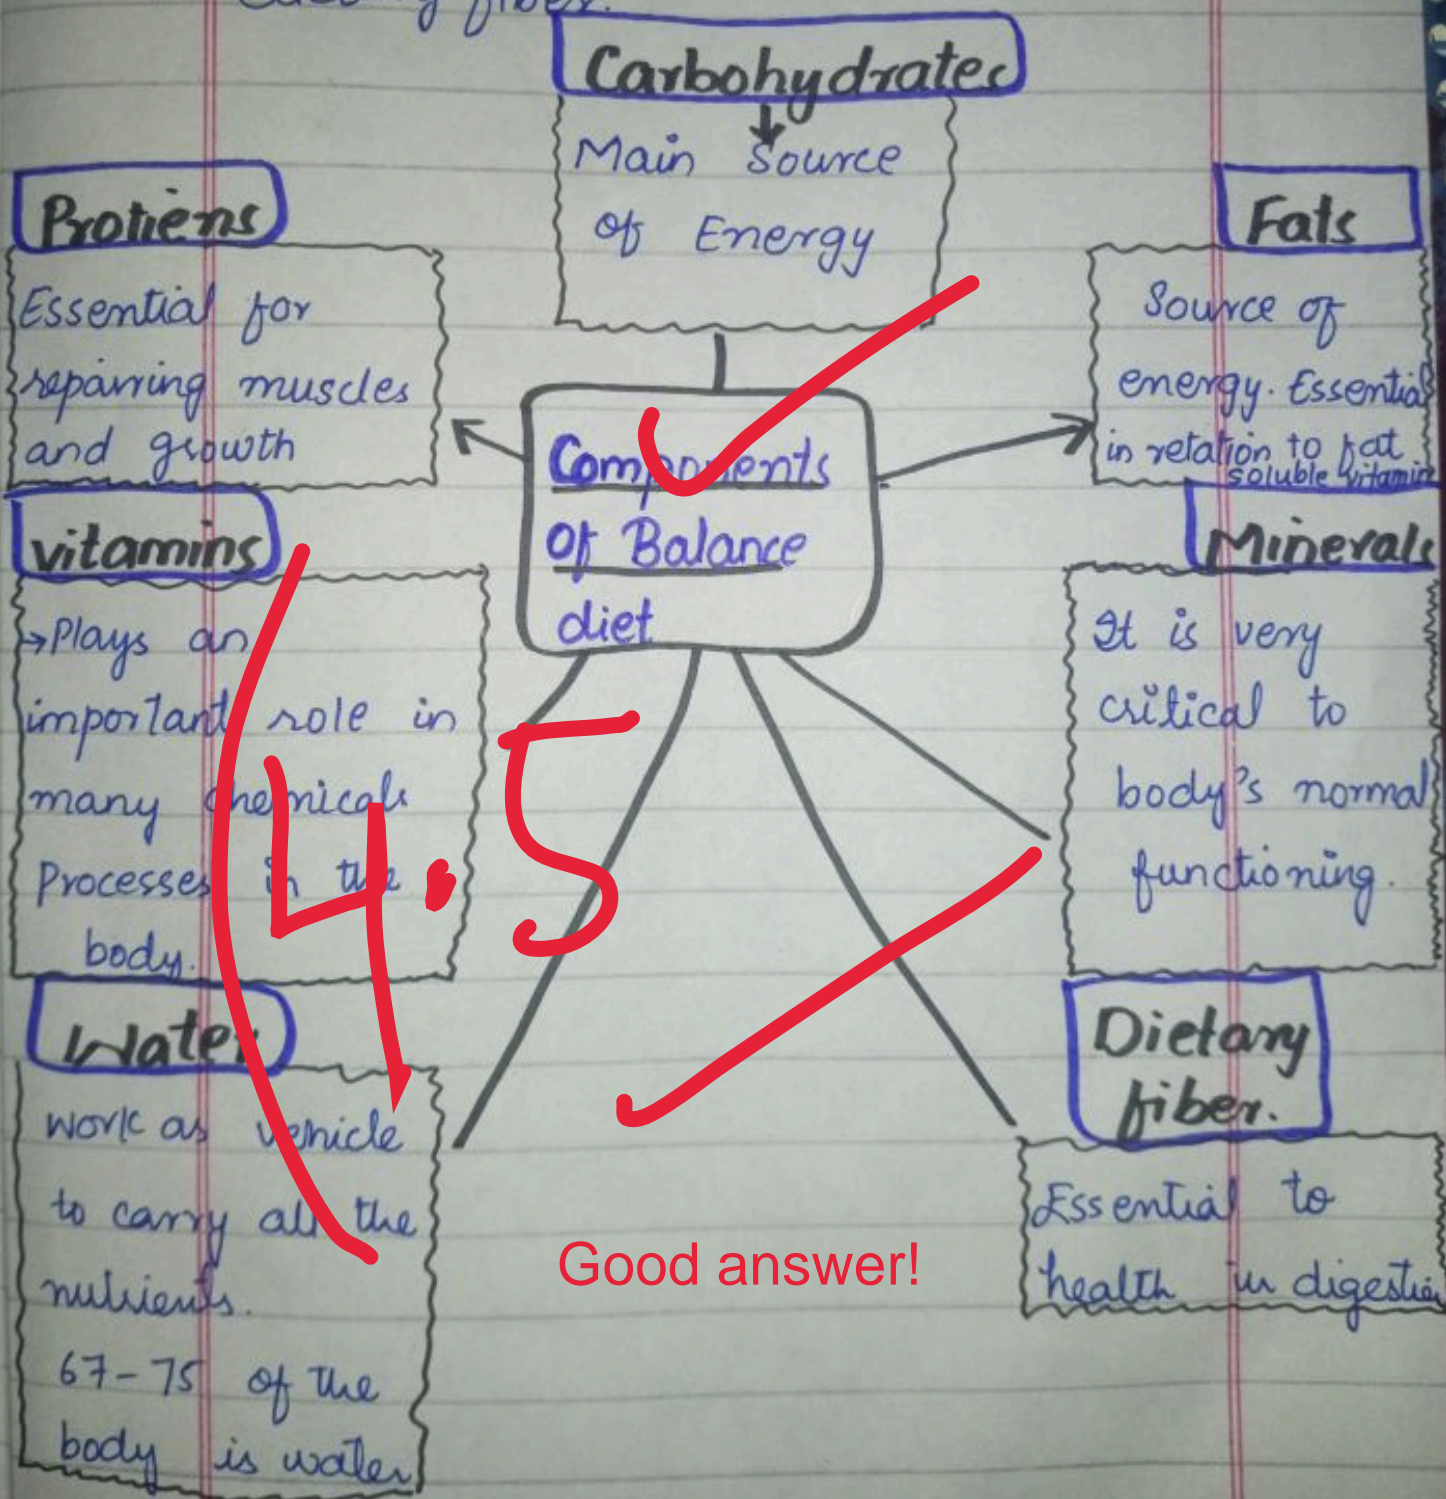 fiber.
Carbohydrates
Main Source
of Energy
Protiens
Essential for
repairing muscles
and growth
Fats
Source of
energy. Essential
in retation to fat
soluble vitamin
Components
Of Balance
diet
vitamins
→Plays an
important role in
many chemicals
Processes in the
body.
Minerals
It is very
critical to
body's normal
functioning.
Water
work as vehicle
to carry all the
nutrients.
67-75 of the
body is water
Dietary
fiber.
Essential to
health in digestion
4.5
Good answer!